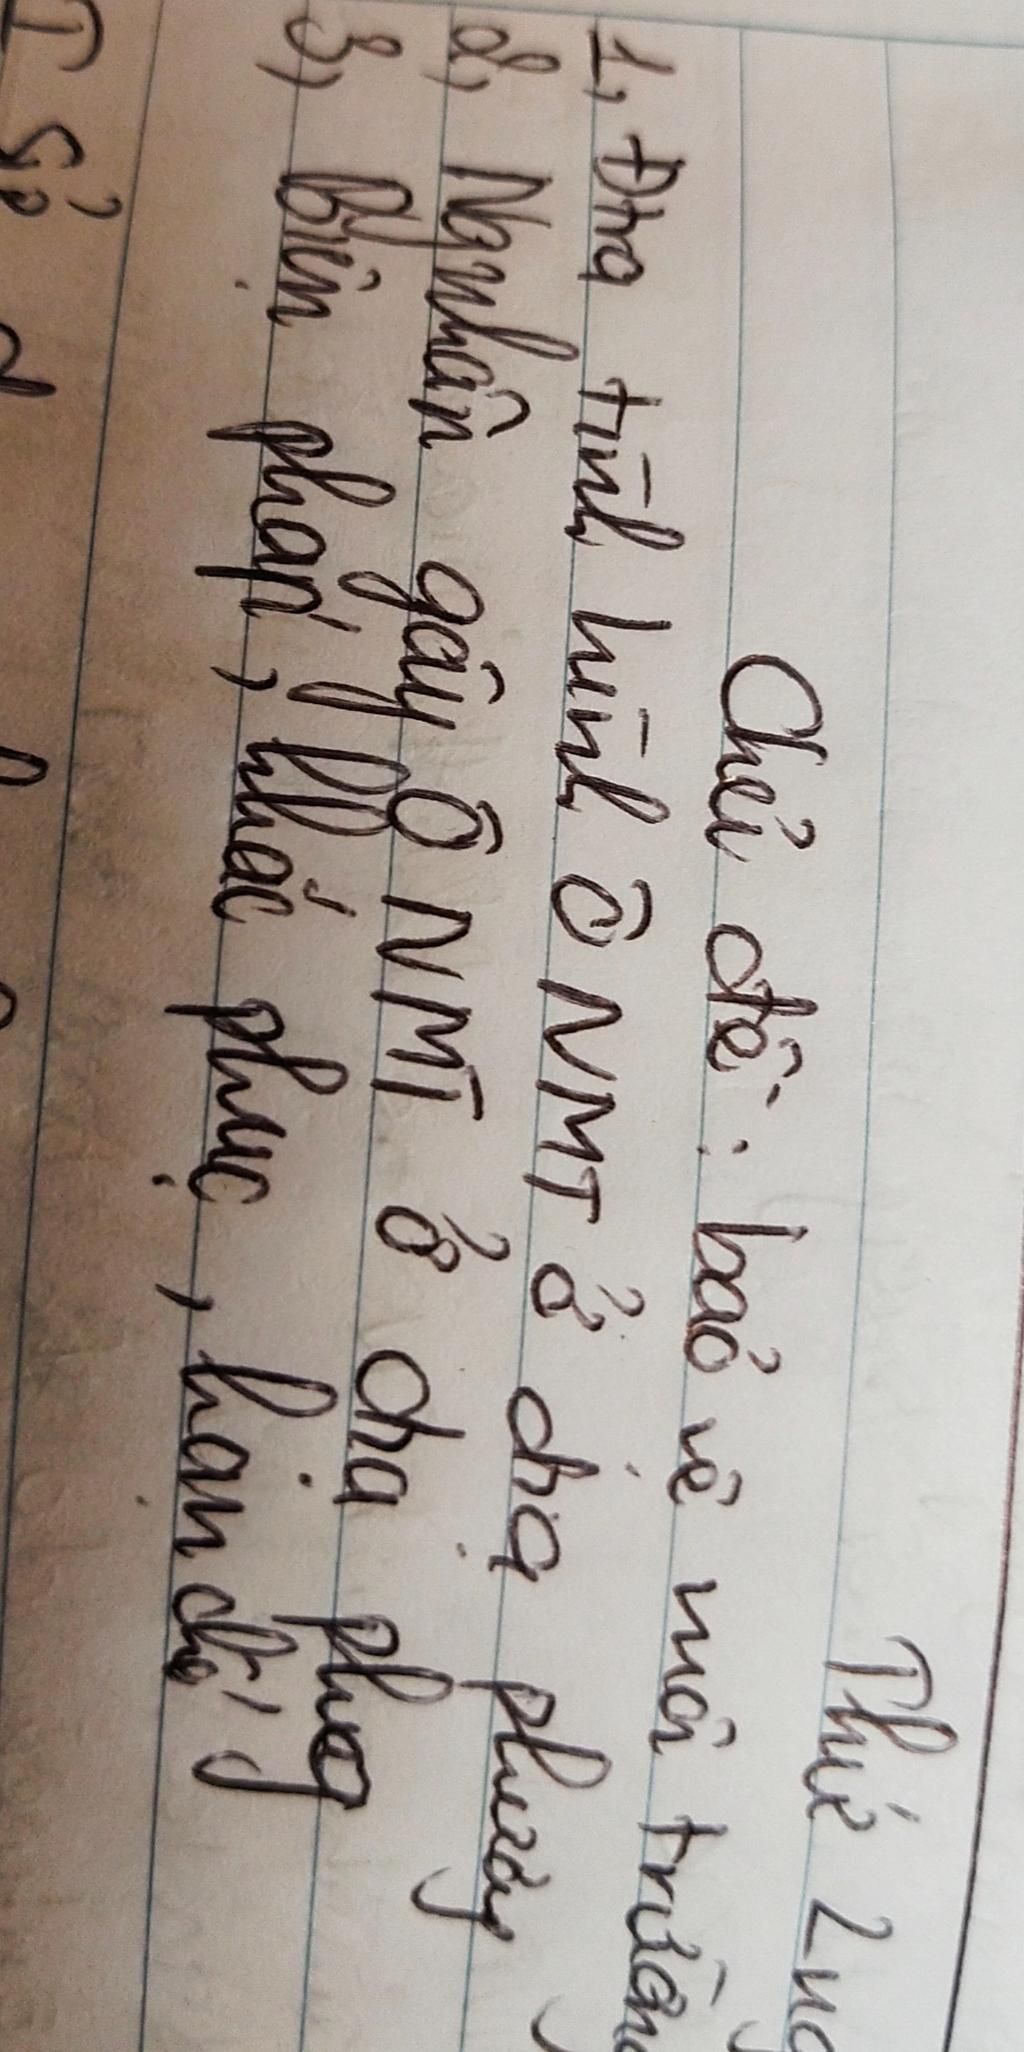 Thứ 2 ng
Chủ đề: bảo vệ môi trường
1, Đưa tình hình ÔNMT ở địa phương
2, Ngnhân gây ÔNMT ở địa phương
3, Biện pháp, khắc phục, hạn chế
I